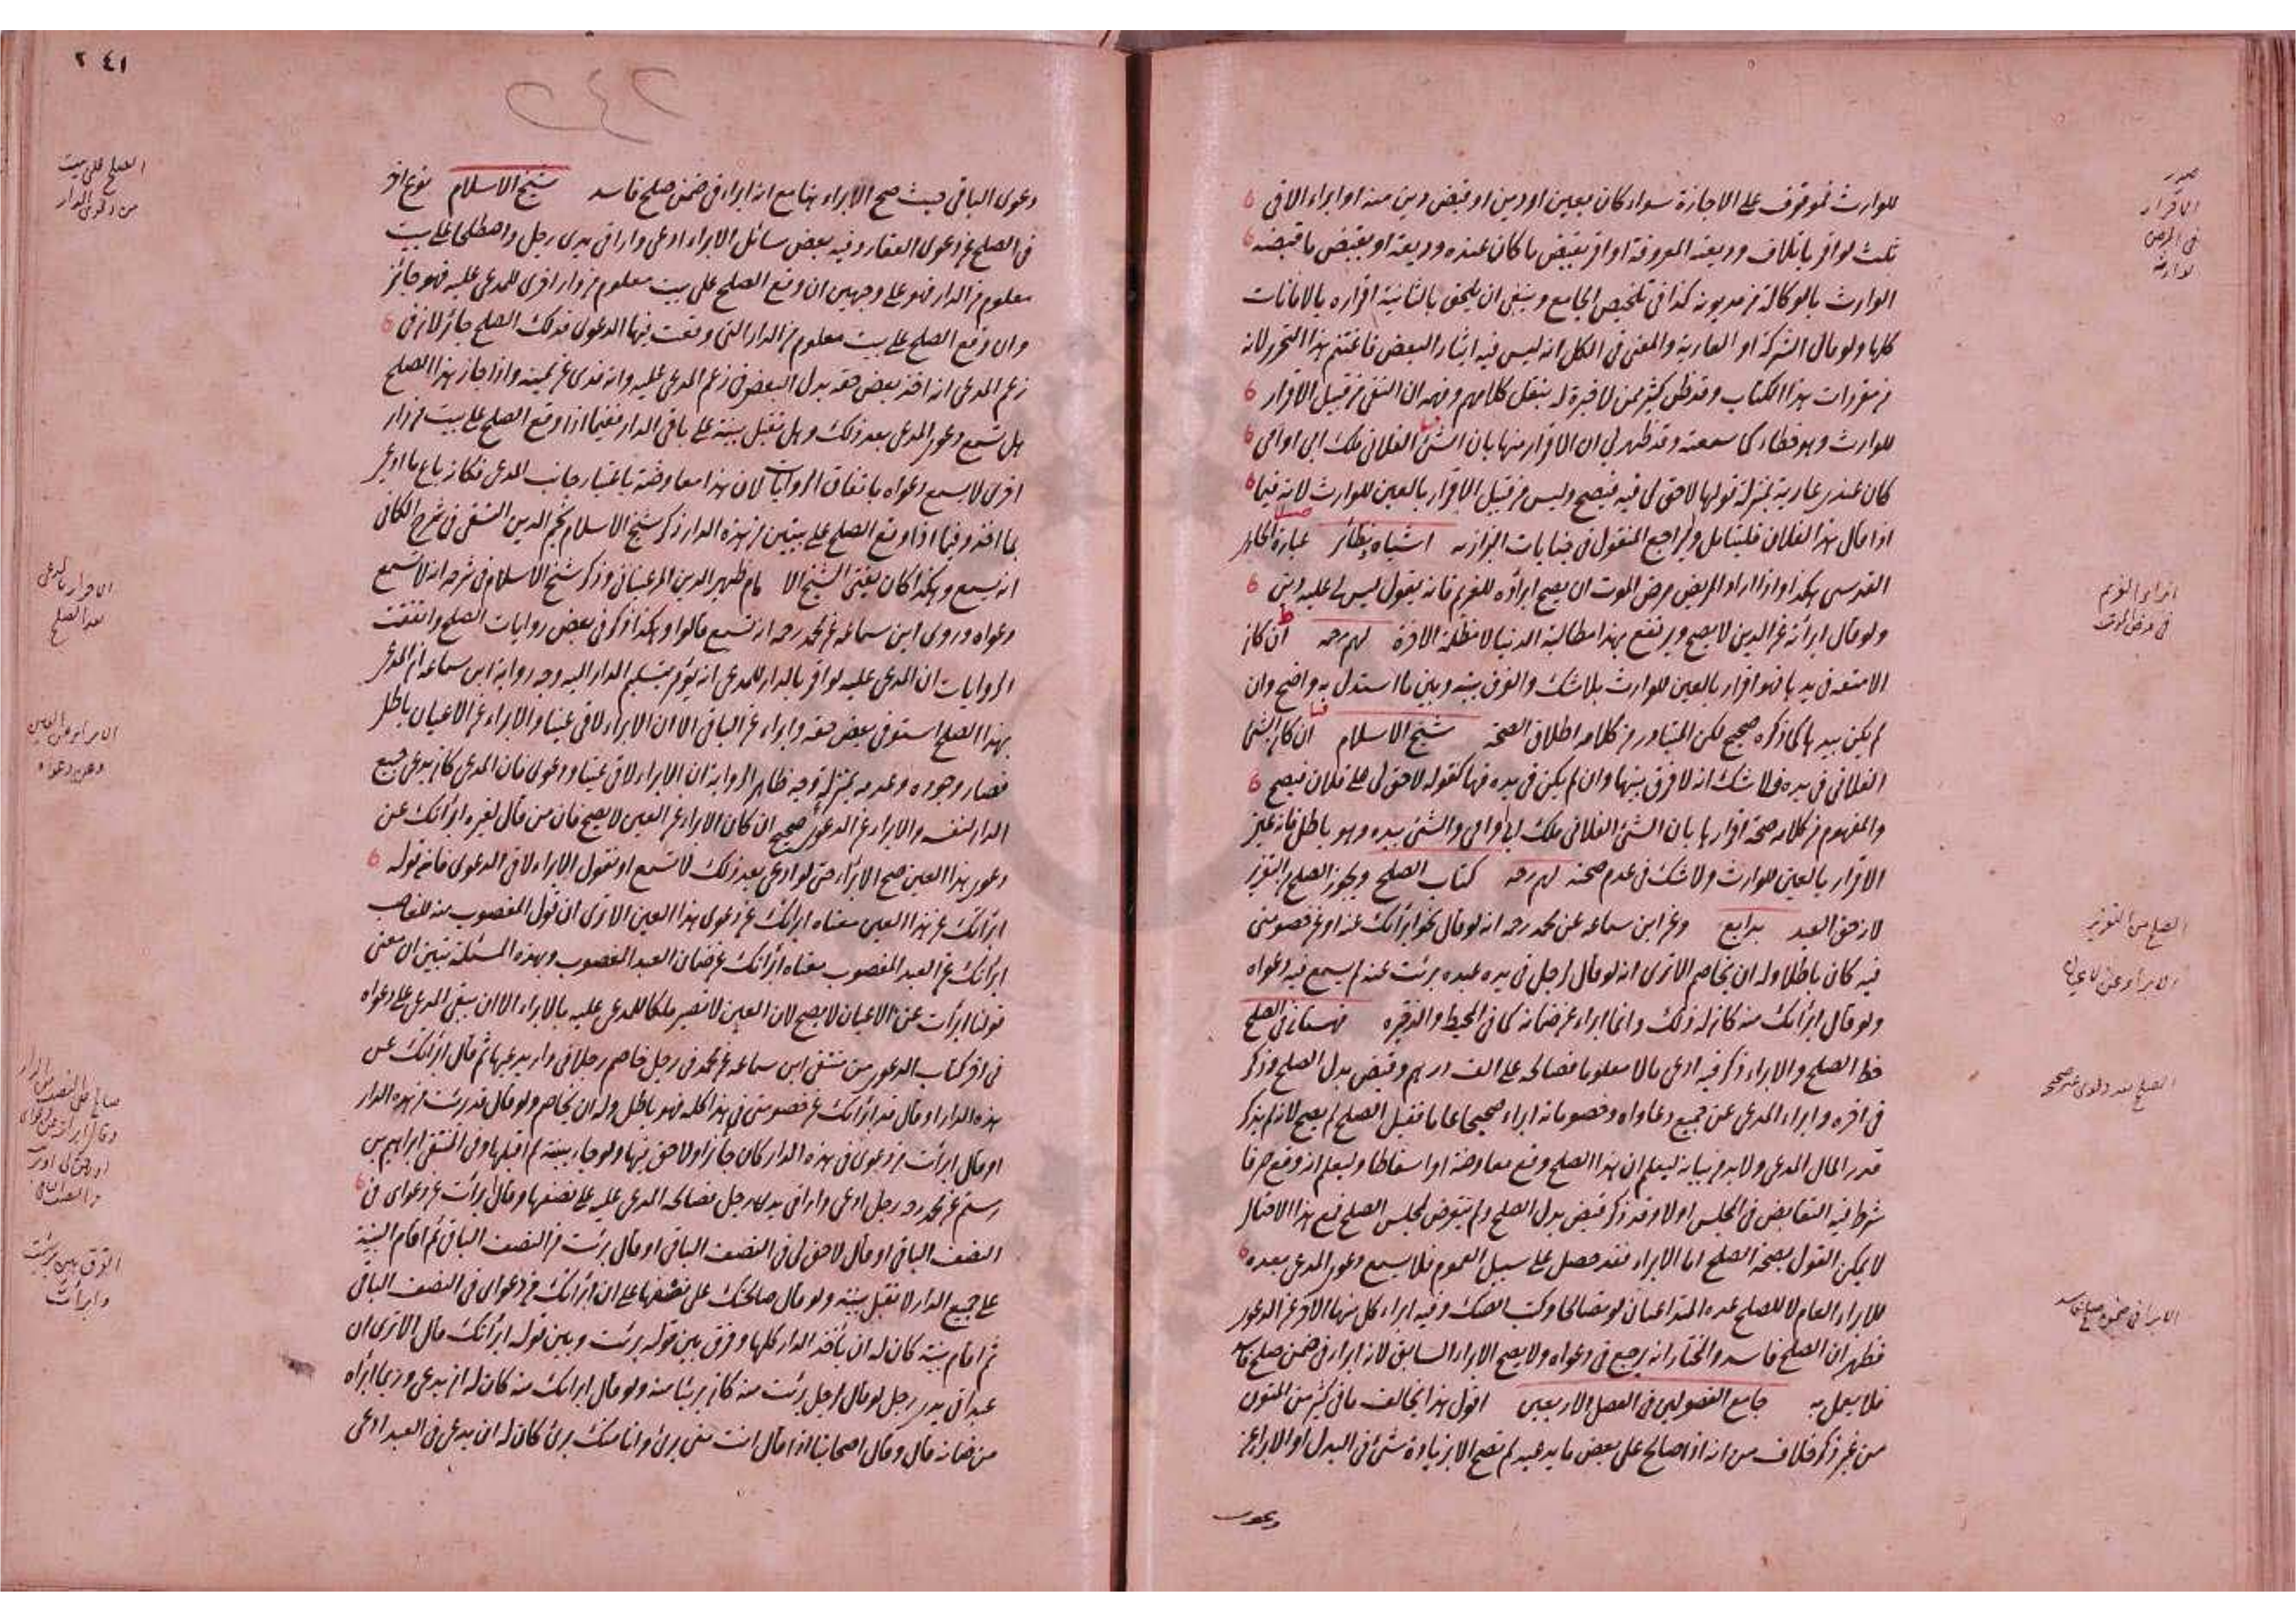 للوارث فموقوف على الاجازة سواء كان بعين او دين او قبض دين منه او ابراء الا في
ثلث لو اقر باتلاف وديعته المعروفة او اقر بقبض ما كان عنده وديعة او بقبض ما قبضه
الوارث بالوكالة من مديونه كذا في تلخيص الجامع وينبغي ان يلحق بالثانية اقراره بالامانات
كلها ولو مال الشركة او العارية والمعنى في الكل انه ليس فيه ايثار البعض فاغتنم هذا التحرير لانه
من مفردات هذا الكتاب وقد ظن كثير ممن لا خبرة له بنقل كلامهم وفهمه ان النفي من قبيل الاقرار
للوارث وهو خطاء كما سمعته وقد ظهر لي ان الاقرار منها بان الشئ الفلاني ملك ابي او امي
كان عندي عارية بمنزلة قولها لا حق لي فيه فيصح وليس من قبيل الاقرار بالعين للوارث لانه فيما
اذا قال هذا لفلان فليتأمل وليراجع المنقول في جنايات البزازيه اشباه ونظائر عبارة الحاوي
القدسي هكذا واذا اراد المريض مرض الموت ان يصح ابراؤه للغريم فانه يقول ليس لي عليه دين
ولو قال ابرأته عن الدين لا يصح ويرتفع بهذا مطالبة الدنيا لا مظلمة الاخرة لمحرره ان كان
الامتعه في يدها فهو اقرار بالعين للوارث بلا شك والفرق بينه وبين ما استدل به واضح وان
لم يكن بيدها كما ذكره صحيح لكن المتبادر من كلامه اطلاق الصحة شيخ الاسلام ان كان الشئ
الفلاني في يده فلا شك انه لا فرق بينها وان لم يكن في يده فها كقوله لا حق لي على فلان فيصح
والمفهوم من كلامه صحة اقرارها بان الشئ الفلاني ملك ابي او امي والشئ بيده وهو باطل فانه عين
الاقرار بالعين للوارث ولا شك في عدم صحته كتاب الصلح ويجوز الصلح من التعزير
لانه حق العبد بدايع وعن ابن سماعه عن محمد رحمه انه لو قال نحو ابرأتك عنه او عن خصومتي
فيه كان باطلا وله ان يخاصم الا ترى انه لو قال لرجل في يده عبده برئت عنه لم يسمع فيه دعواه
ولو قال ابرأتك منه كان له ذلك وانما ابراء عن ضمانه كما في المحيط والذخيره قهستاني في الصلح
خط الصلح والابراء ذكر فيه ادعى مالا معلوما فصالحه على الف درهم وقبض بدل الصلح وذكر
في اخره وابراء المدعي عن جميع دعاواه وخصوماته ابراء صحيحا عاما فقيل الصلح لم يصح لانه لم يذكر
قدر المال المدعى ولا بد من بيانه ليعلم ان هذا الصلح وقع معاوضة او اسقاطا وليعلم انه وقع صرفا
شرط فيه التقابض في المجلس اولا وقد ذكر قبض بدل الصلح ولم يتعرض لمجلس الصلح فمع هذا الاحتمال
لا يمكن القول بصحة الصلح اما الابراء فقد حصل على سبيل العموم فلا يسمع دعوى المدعي بعده
للابراء العام لا للصلح عده المتداعيان لو تصالحا وكتب الصك وفيه ابراء كل منهما الاخر عن الدعوى
فظهر ان الصلح فاسد والمختار انه يرجع في دعواه ولا يصح الابراء السابق لانه ابراء في ضمن صلح فاسد
فلا يعمل به جامع الفصولين في الفصل الاربعين اقول هذا يخالف ما في كثير من المتون
من غير ذكر خلاف من انه اذا صالح على بعض ما يدعيه لم تصح الا بزيادة شئ في البدل او الابراء عن
دعوى
صدور
الاقرار
في المرض
لوارثه
ابراء الغريم
في مرض الموت
الصلح من التعزير
الابراء عن الاعيان
الصلح بعد دعوى غير صحيحه
الابراء في ضمن صلح فاسد
٢٤١
دعوى الباقي حيث صح الابراء بها مع انه ابراء في ضمن صلح فاسد شيخ الاسلام نوع اخر
في الصلح عن دعوى العقار وفيه بعض مسائل الابراء ادعى دارا في يدي رجل واصطلحا على بيت
معلوم من الدار فهو على وجهين ان وقع الصلح على بيت معلوم من دار اخرى للمدعى عليه فهو جائز
وان وقع الصلح على بيت معلوم من الدار التي وقعت فيها الدعوى فذلك الصلح جائز لان في
زعم المدعي انه اخذ بعض حقه بدل البعض وفي زعم المدعى عليه وانه فدى عن يمينه واذا جاز هذا الصلح
هل تسمع دعوى المدعي بعد ذلك وهل تقبل بينة على باقي الدار ففيما اذا وقع الصلح على بيت من دار
اخرى لا يسمع دعواه باتفاق الروايات لان هذا معاوضة باعتبار جانب المدعي فكانه باع ما ادعى
بما اخذ وفيما اذا وقع الصلح على بيتين من هذه الدار ذكر شيخ الاسلام نجم الدين النسفي في شرح الكافي
انه يسمع وهكذا كان يفتي الشيخ الا مام ظهير الدين المرغيناني وذكر شيخ الاسلام في شرحه انه لا تسمع
دعواه وروى ابن سماعه عن محمد رحمه انه تسمع قالوا وهكذا ذكر في بعض روايات الصلح واتفقت
الروايات ان المدعى عليه لو اقر بالدار للمدعي انه يؤمر بتسليم الدار اليه وجه رواية ابن سماعه ان المدعي
بهذا الصلح استوفى بعض حقه وابراء عن الباقي الا ان الابراء لاقى عينا والابراء عن الاعيان باطل
فصار وجوده وعدمه بمنزلة وجه ظاهر الرواية ان الابراء لاقى عينا ودعوى فان المدعي كان يدعي جميع
الدار لنفسه والابراء عن الدعوى صحيح ان كان الابراء عن العين لا يصح فان من قال لغيره ابرأتك عن
دعوى هذا العين صح الابراء حتى لو ادعى بعد ذلك لا تسمع او نقول الابراء لاقى الدعوى فانه قوله
ابرأتك عن هذا العين معناه ابرأتك عن دعوى هذا العين الا ترى ان قول المغصوب منه للغاصب
ابرأتك عن العبد المغصوب معناه ابرأتك عن ضمان العبد المغصوب وبهذه المسئلة تبين ان معنى
قولنا ابرأت عن الاعيان لا يصح لان العين لا تصير ملكا للمدعى عليه بالابراء الا ان يبقى المدعي على دعواه
في اخر كتاب الدعوى من منتقى ابن سماعه عن محمد في رجل خاصم رجلا في دار يدعيها ثم قال ابرأتك عن
هذه الدار او قال قد ابرأتك عن خصومتي في هذا كله فهو باطل وله ان يخاصم ولو قال قد برئت من هذه الدار
او قال ابرأت من دعوى في هذه الدار كان جائزا ولا حق فيها ولو جاء ببينة لم اقبلها وفي المنتقى ابراهيم بن
رستم عن محمد رحه رجل ادعى دارا في يدي رجل فصالحه المدعى عليه على نصفها وقال برئت عن دعواي في
النصف الباقي او قال لا حق لي في النصف الباقي او قال برئت من النصف الباقي ثم اقام البينة
على جميع الدار لا تقبل بينته ولو قال صالحتك على نصفها على ان ابرأتك من دعواي في النصف الباقي
ثم اقام بينة كان له ان يأخذ الدار كلها وفرق بين قوله برئت وبين قوله ابرأتك قال الا ترى ان
عبدا في يدي رجل لو قال لرجل برئت منه كان بريئا منه ولو قال ابرأتك منه كان له ان يدعي وانما ابرأه
من ضمانه قال وقال اصحابنا اذا قال انت مني برئ وانا منك برئ كان له ان يدعي في العبد ادعى
الصلح على بيت
من دعوى الدار
الاقرار بالمدعى
بعد الصلح
الابراء عن العين
وعن دعواه
صالح على النصف من الدار
من النصف الباقي
الفرق بين برئت
وابرأت